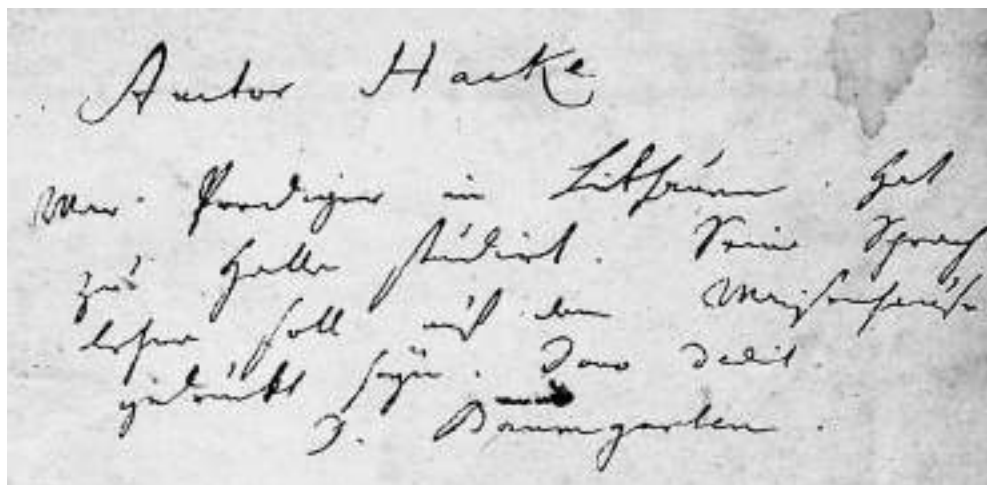 Auctor Hacke
War Prediger in Litthauen. hat
zu Halle studirt. Seine Sprach
lehre soll auf dem Waysenhause
gedruckt seyn. Dono dedit.
D. Baumgarten.